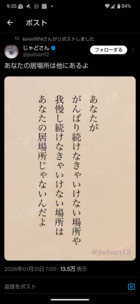 9:25
84
ポスト
kirin1974さんがリポストしました
じゃどさん
@judson12
フォローする
あなたの居場所は他にあるよ
あなたが
がんばり続けなきゃいけない場所や
我慢し続けなきゃいけない場所は
あなたの居場所じゃないんだよ
@judson12
2026年01月31日 7:00・13.5万 表示
返信をポスト